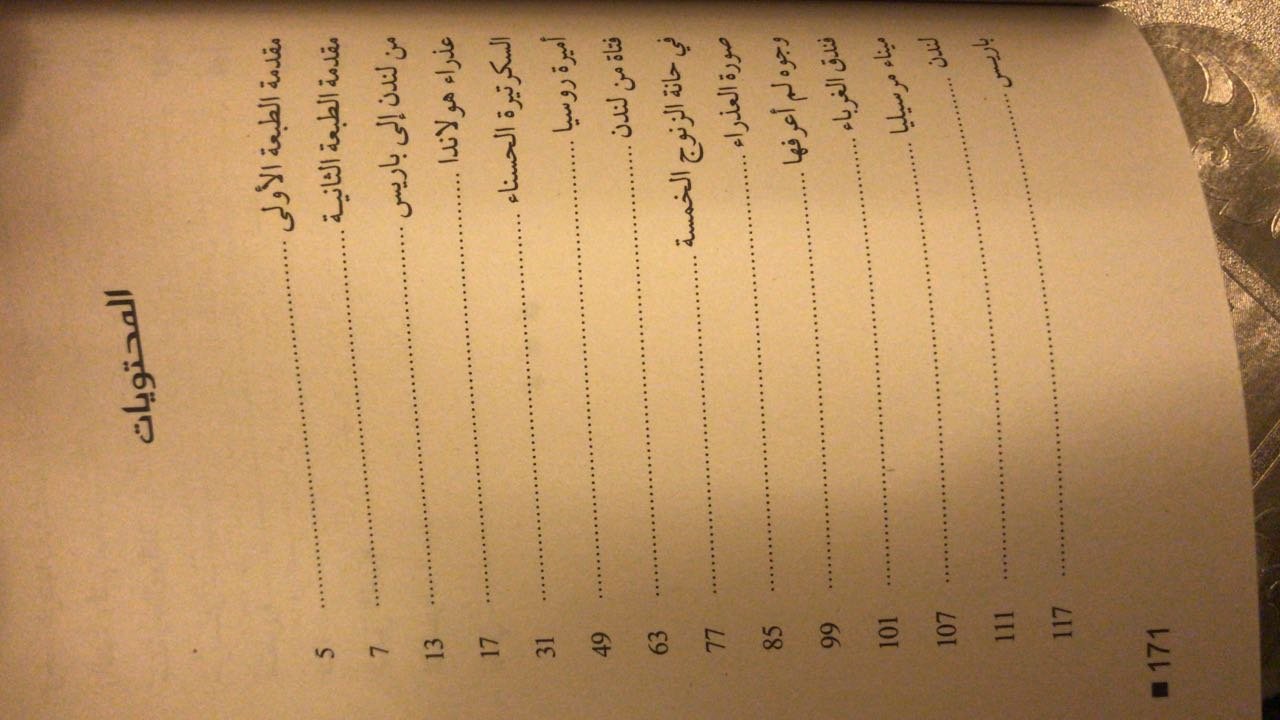 المحتويات
مقدمة الطبعة الأولى ........ 5
مقدمة الطبعة الثانية ........ 7
من لندن إلى باريس ........ 13
عذراء هولاندا ........ 17
السكرتيرة الحسناء ........ 31
أميرة روسيا ........ 49
فتاة من لندن ........ 63
في حانة الزنوج الخمسة ........ 77
صورة العذراء ........ 85
وجوه لم أعرفها ........ 99
فندق الغرباء ........ 101
ميناء مرسيليا ........ 107
لندن ........ 111
باريس ........ 117
■ 171